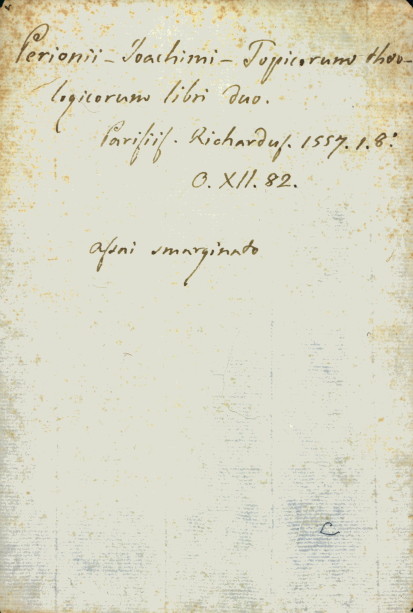 Perionii - Joachimi - Topicorum theo-
logicorum libri duo.
Parisiis. Richardus. 1557. 1. 8:
O. XII. 82.
assai smarginato
C